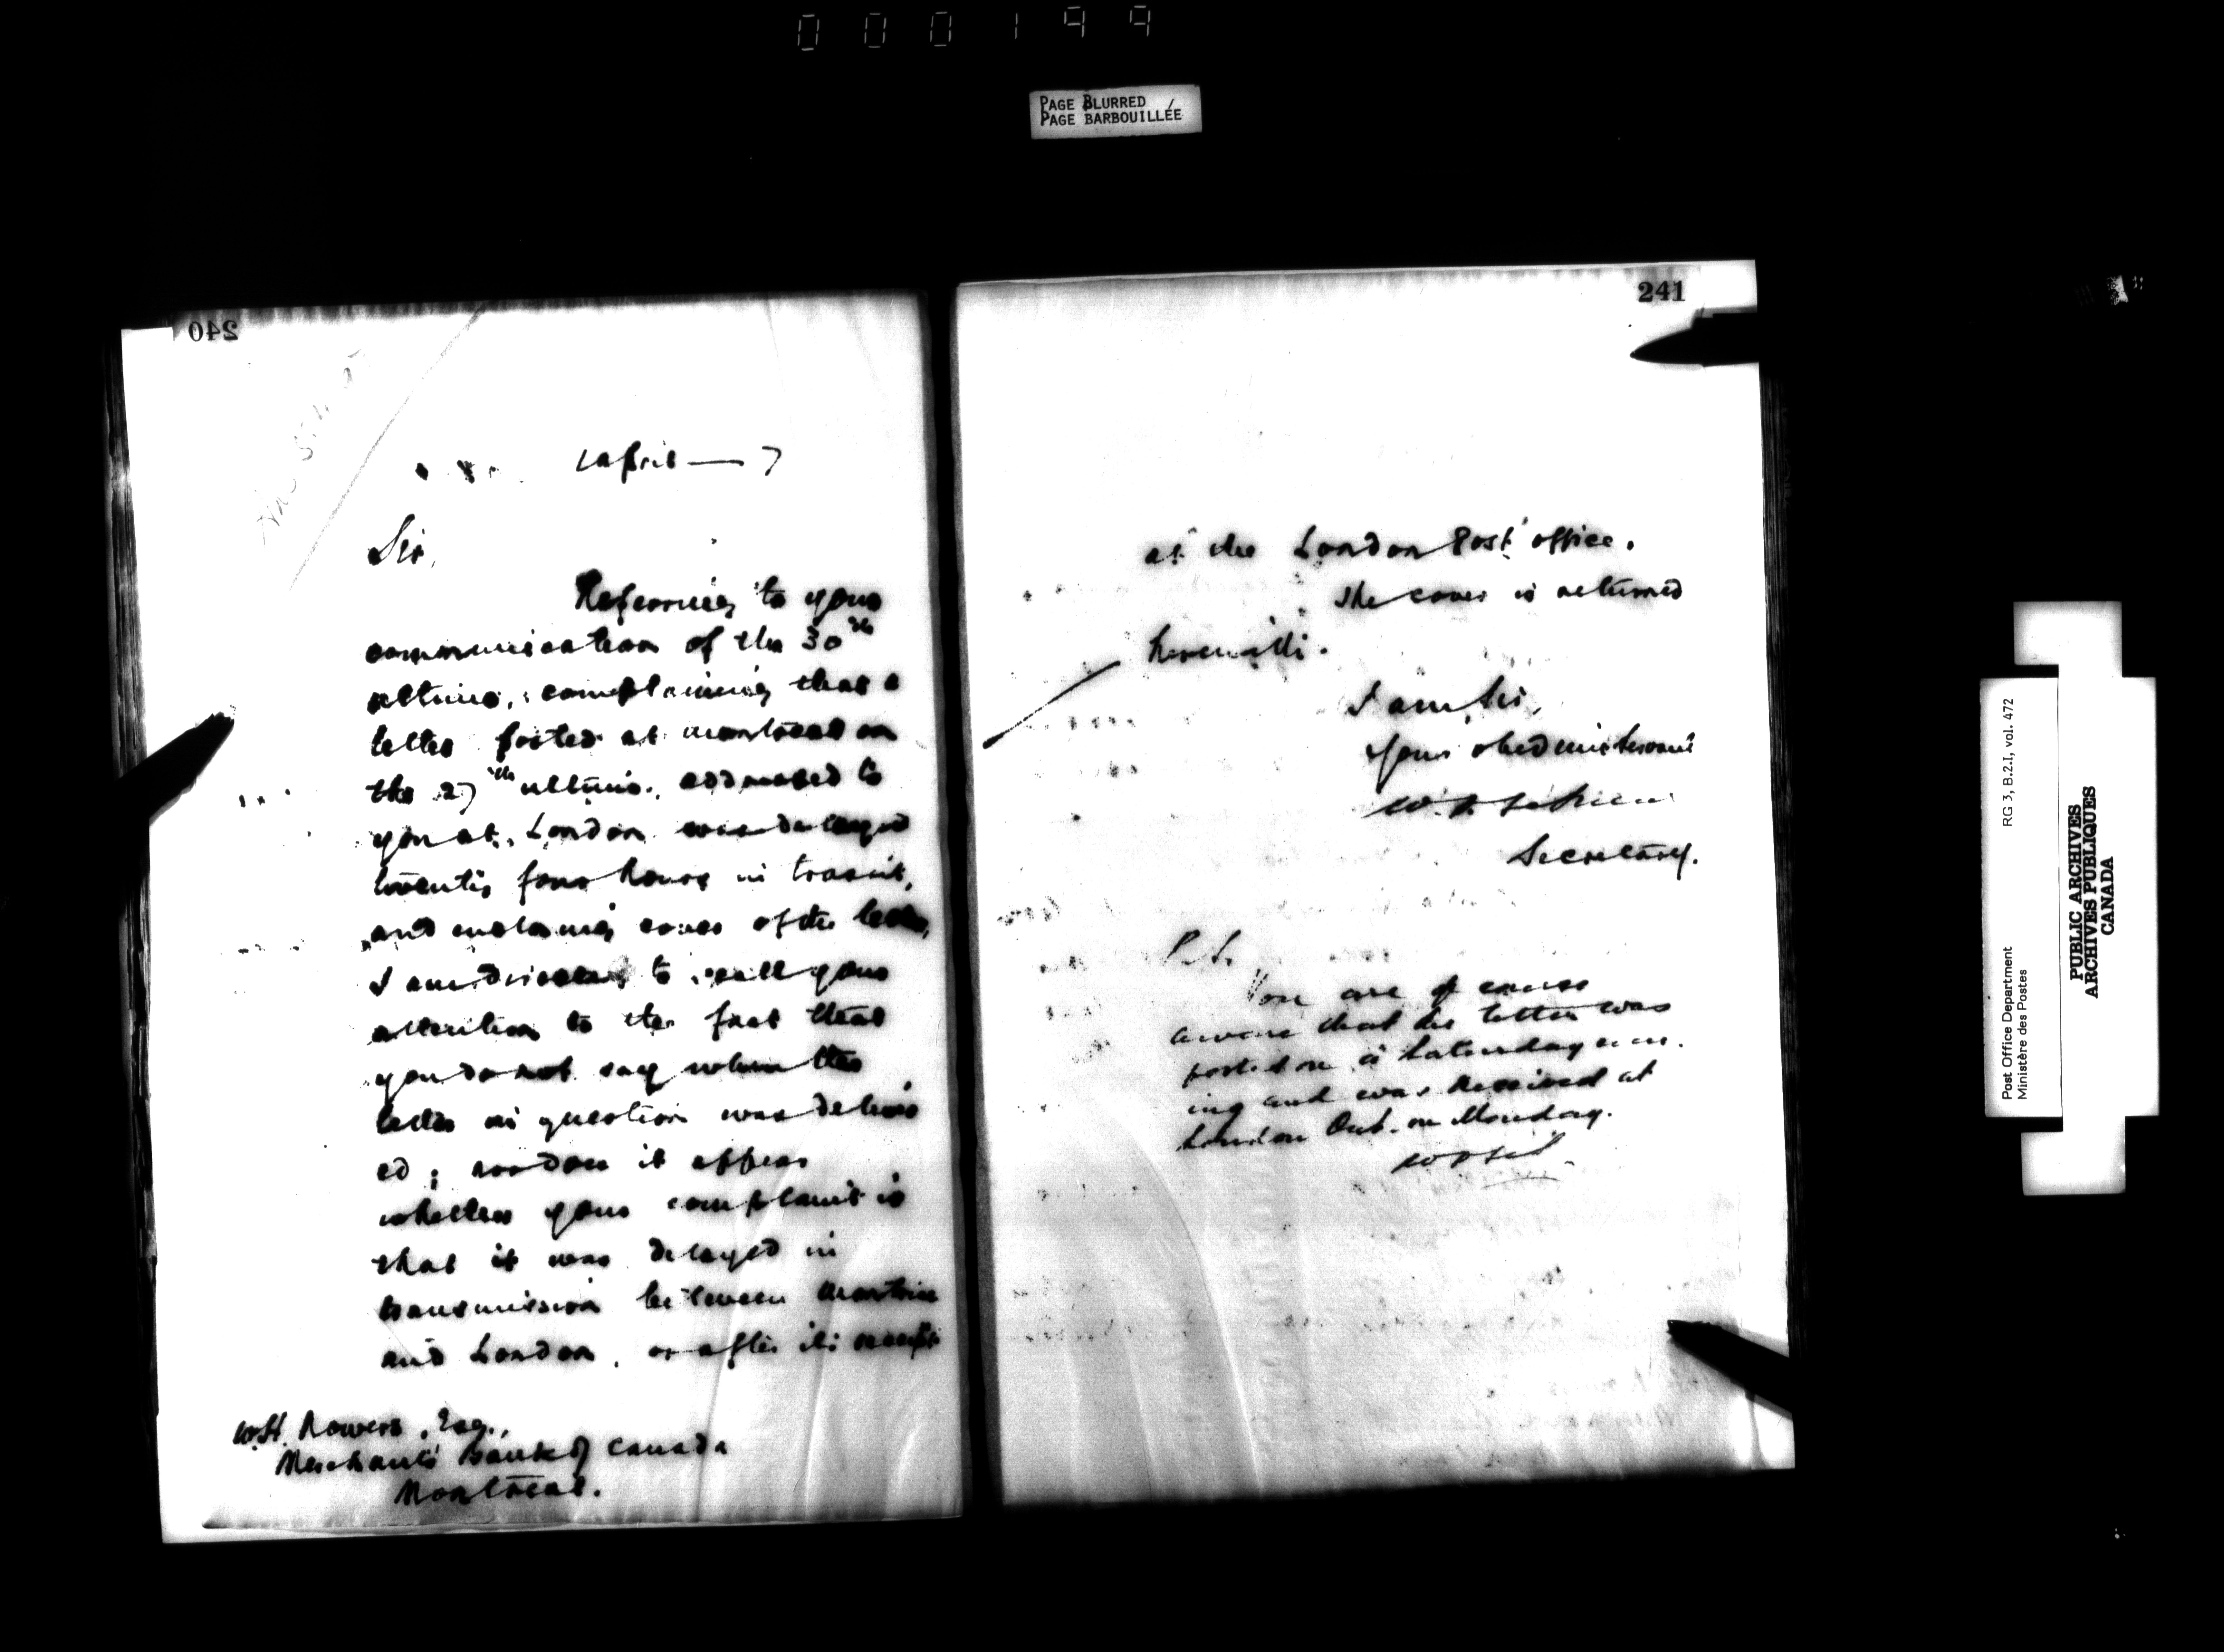 000199
PAGE BLURRED
PAGE BARBOUILLÉE
240
April — 7
Sir,
Referring to your
communication of the 30th
ultimo, complaining that a
letter posted at Montreal on
the 27th ultimo, addressed to
you at London was delayed
twenty four hours in transit,
and enclosing cover of the letter,
I am directed to call your
attention to the fact that
you do not say when the
letter in question was deliver
ed; nor does it appear
whether your complaint is
that it was delayed in
transmission between Montreal
and London, or after its receipt
W.H. Rowers, Esq.,
Merchants Bank of Canada
Montreal.
241
at the London Post office.
The cover is returned
herewith.
I am, Sir,
Your obedient servant
Secretary.
P.S.
You are of course
aware that the letter was
posted on a Saturday even
ing and was received at
London Ont. on Monday.
Post Office Department
Ministère des Postes
RG 3, B.2.I, vol. 472
PUBLIC ARCHIVES
ARCHIVES PUBLIQUES
CANADA